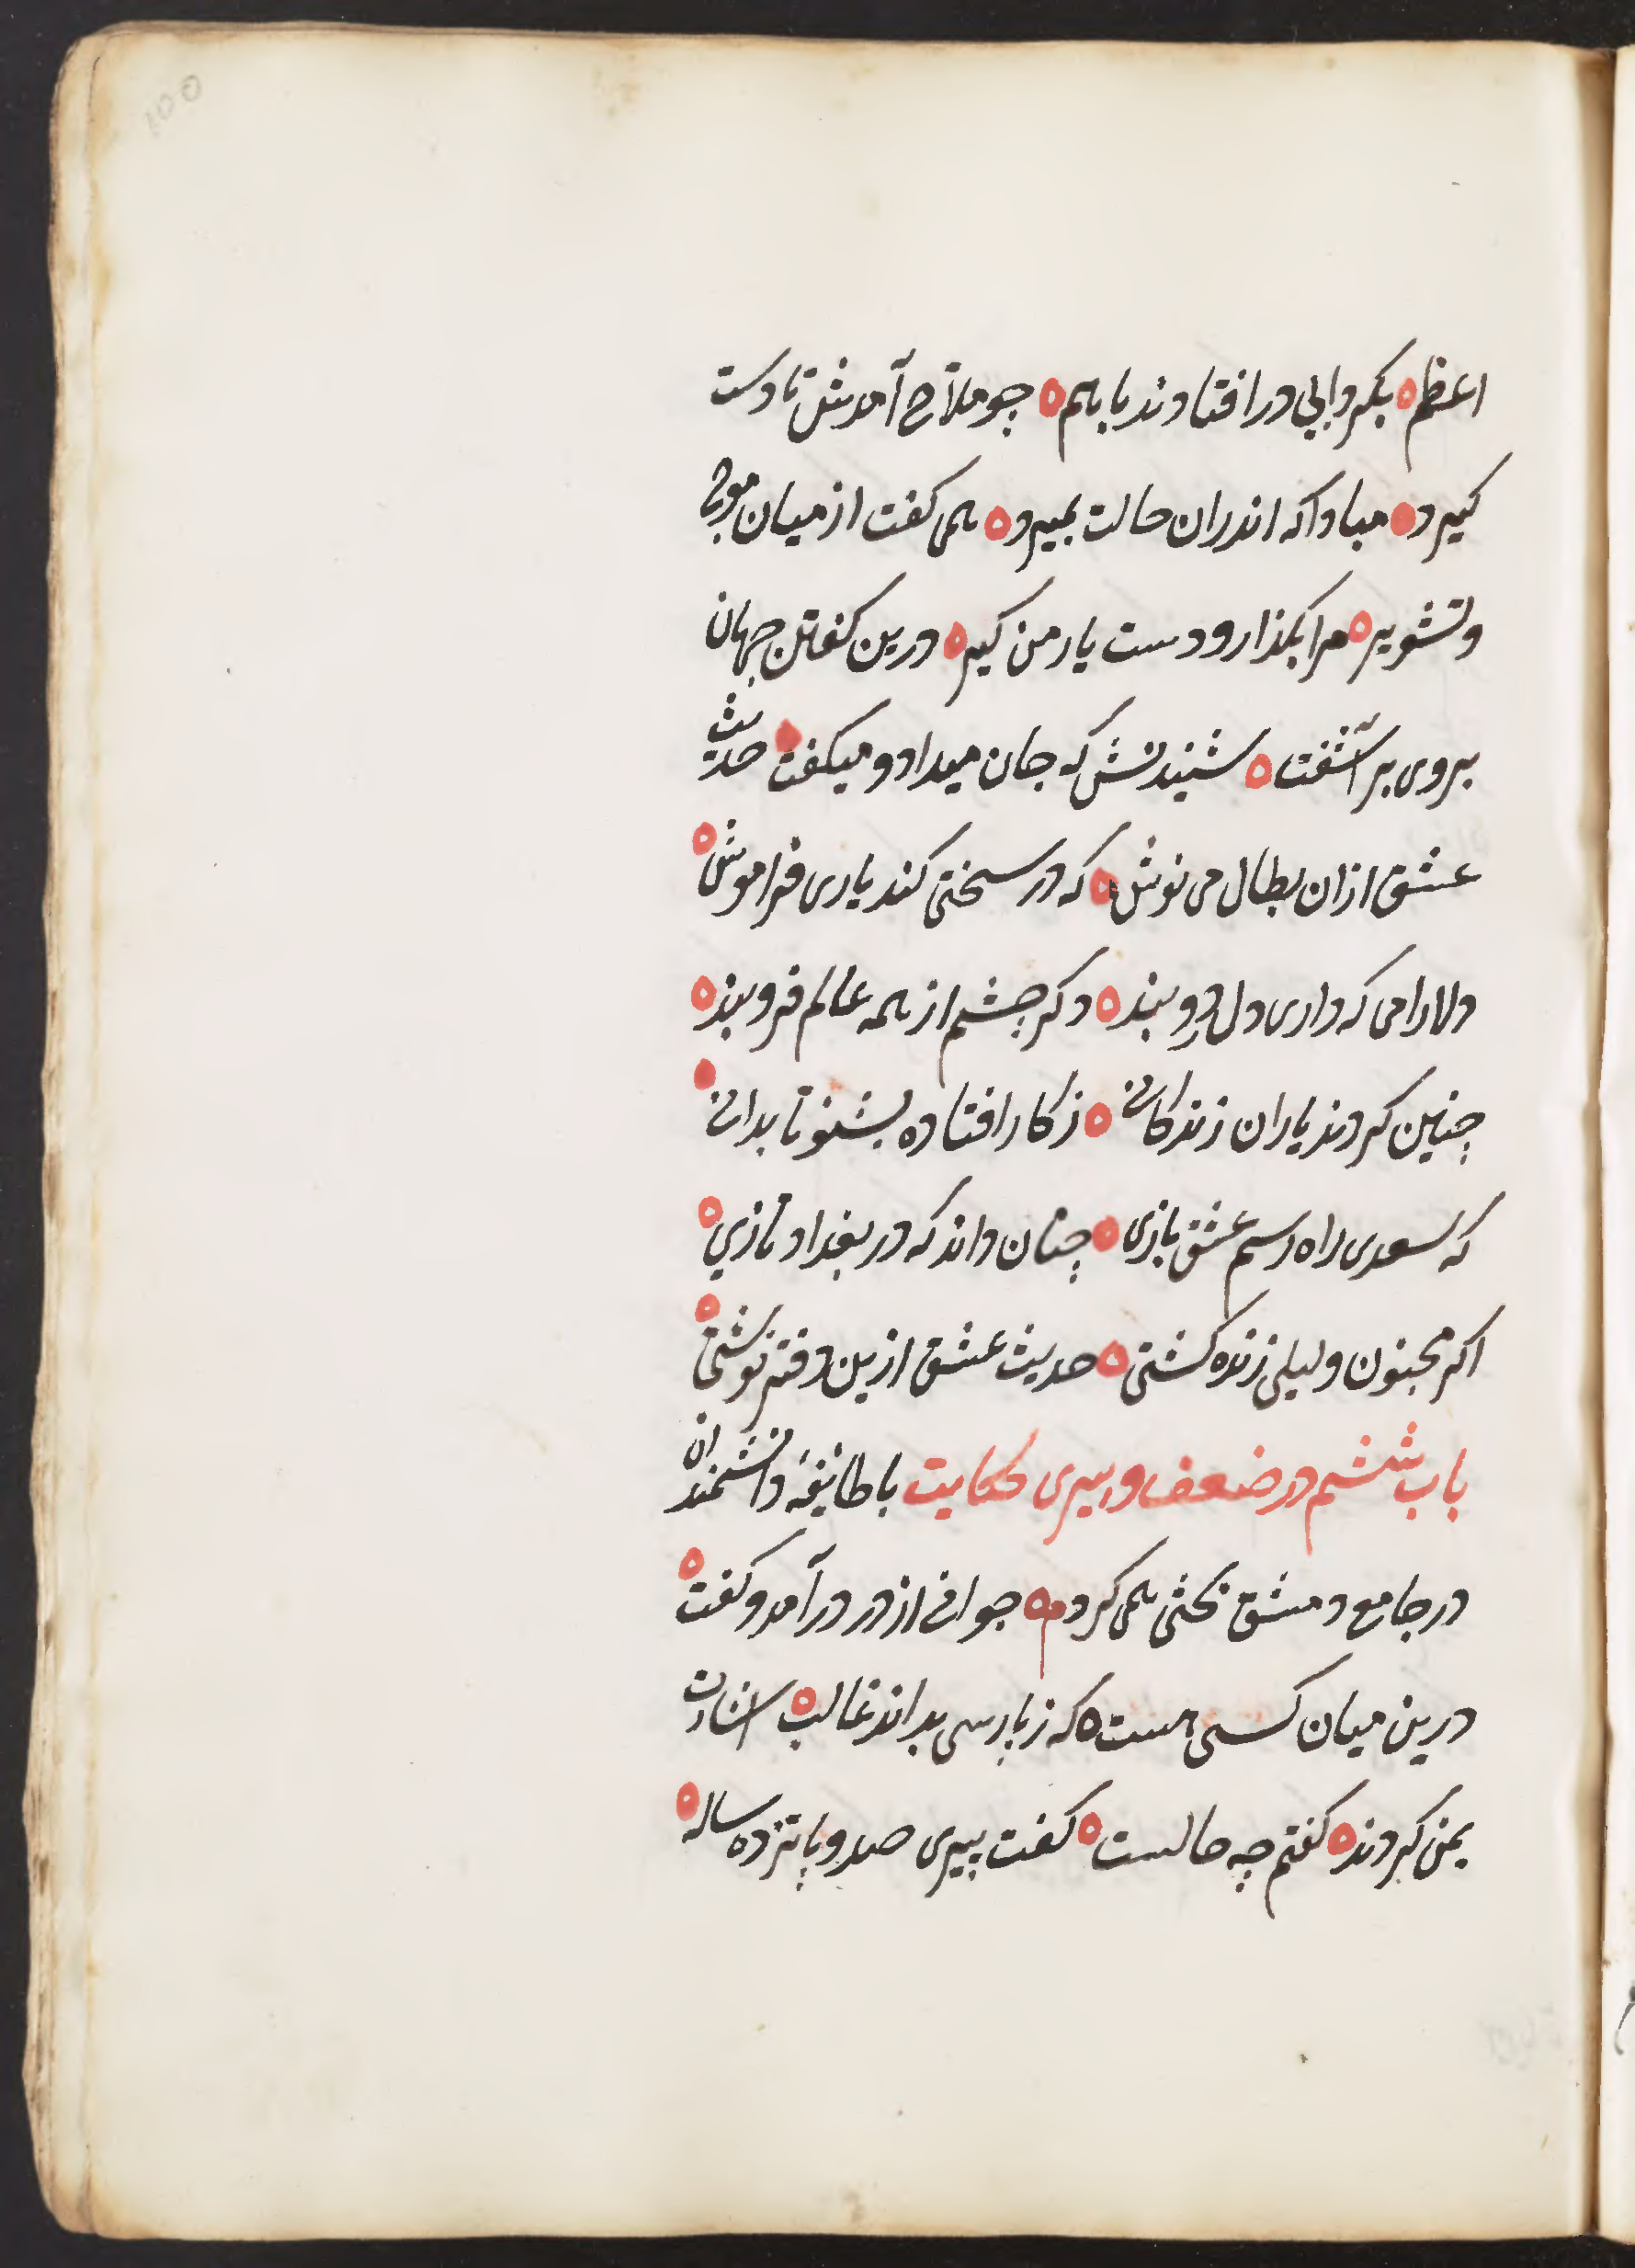 100
اعظم ه بكردابى در افتادند با هم ه چو ملاّح آمدش تا دست
كيرد ه مبادا كه اندران حالت بميرد ه همى كفت از ميان موج
و تشوير ه مرا بكذار و دست يار من كير ه درين كفتن جهان
بروى بر آشفت ه شنيدندش كه جان ميداد و ميكفت ه حديث
عشق ازان بطال مى نوش ه كه در سختى كند يارى فراموش ه
دلارامى كه دارى دل درو بند ه دكر چشم از همه عالم فرو بند ه
چنين كردند ياران زندكانى ه ز كار افتاده بشنو تا بدانى ه
كه سعدى راه رسم عشق بازى ه چنان داند كه در بغداد تازي ه
اكر مجنون و ليلى زنده كشتى ه حديث عشق ازين دفتر نوشتى ه
باب ششم در ضعف و پيرى حكايت با طائفهٔ دانشمندان
در جامع دمشق بحثى همى كردم ه جوانى از در در آمد و كفت ه
درين ميان كسى هست ه كه زپارسى بداند غالب ه اشارت
بمن كردند ه كفتم چه حالست ه كفت پيرى صد و پانزده ساله ه